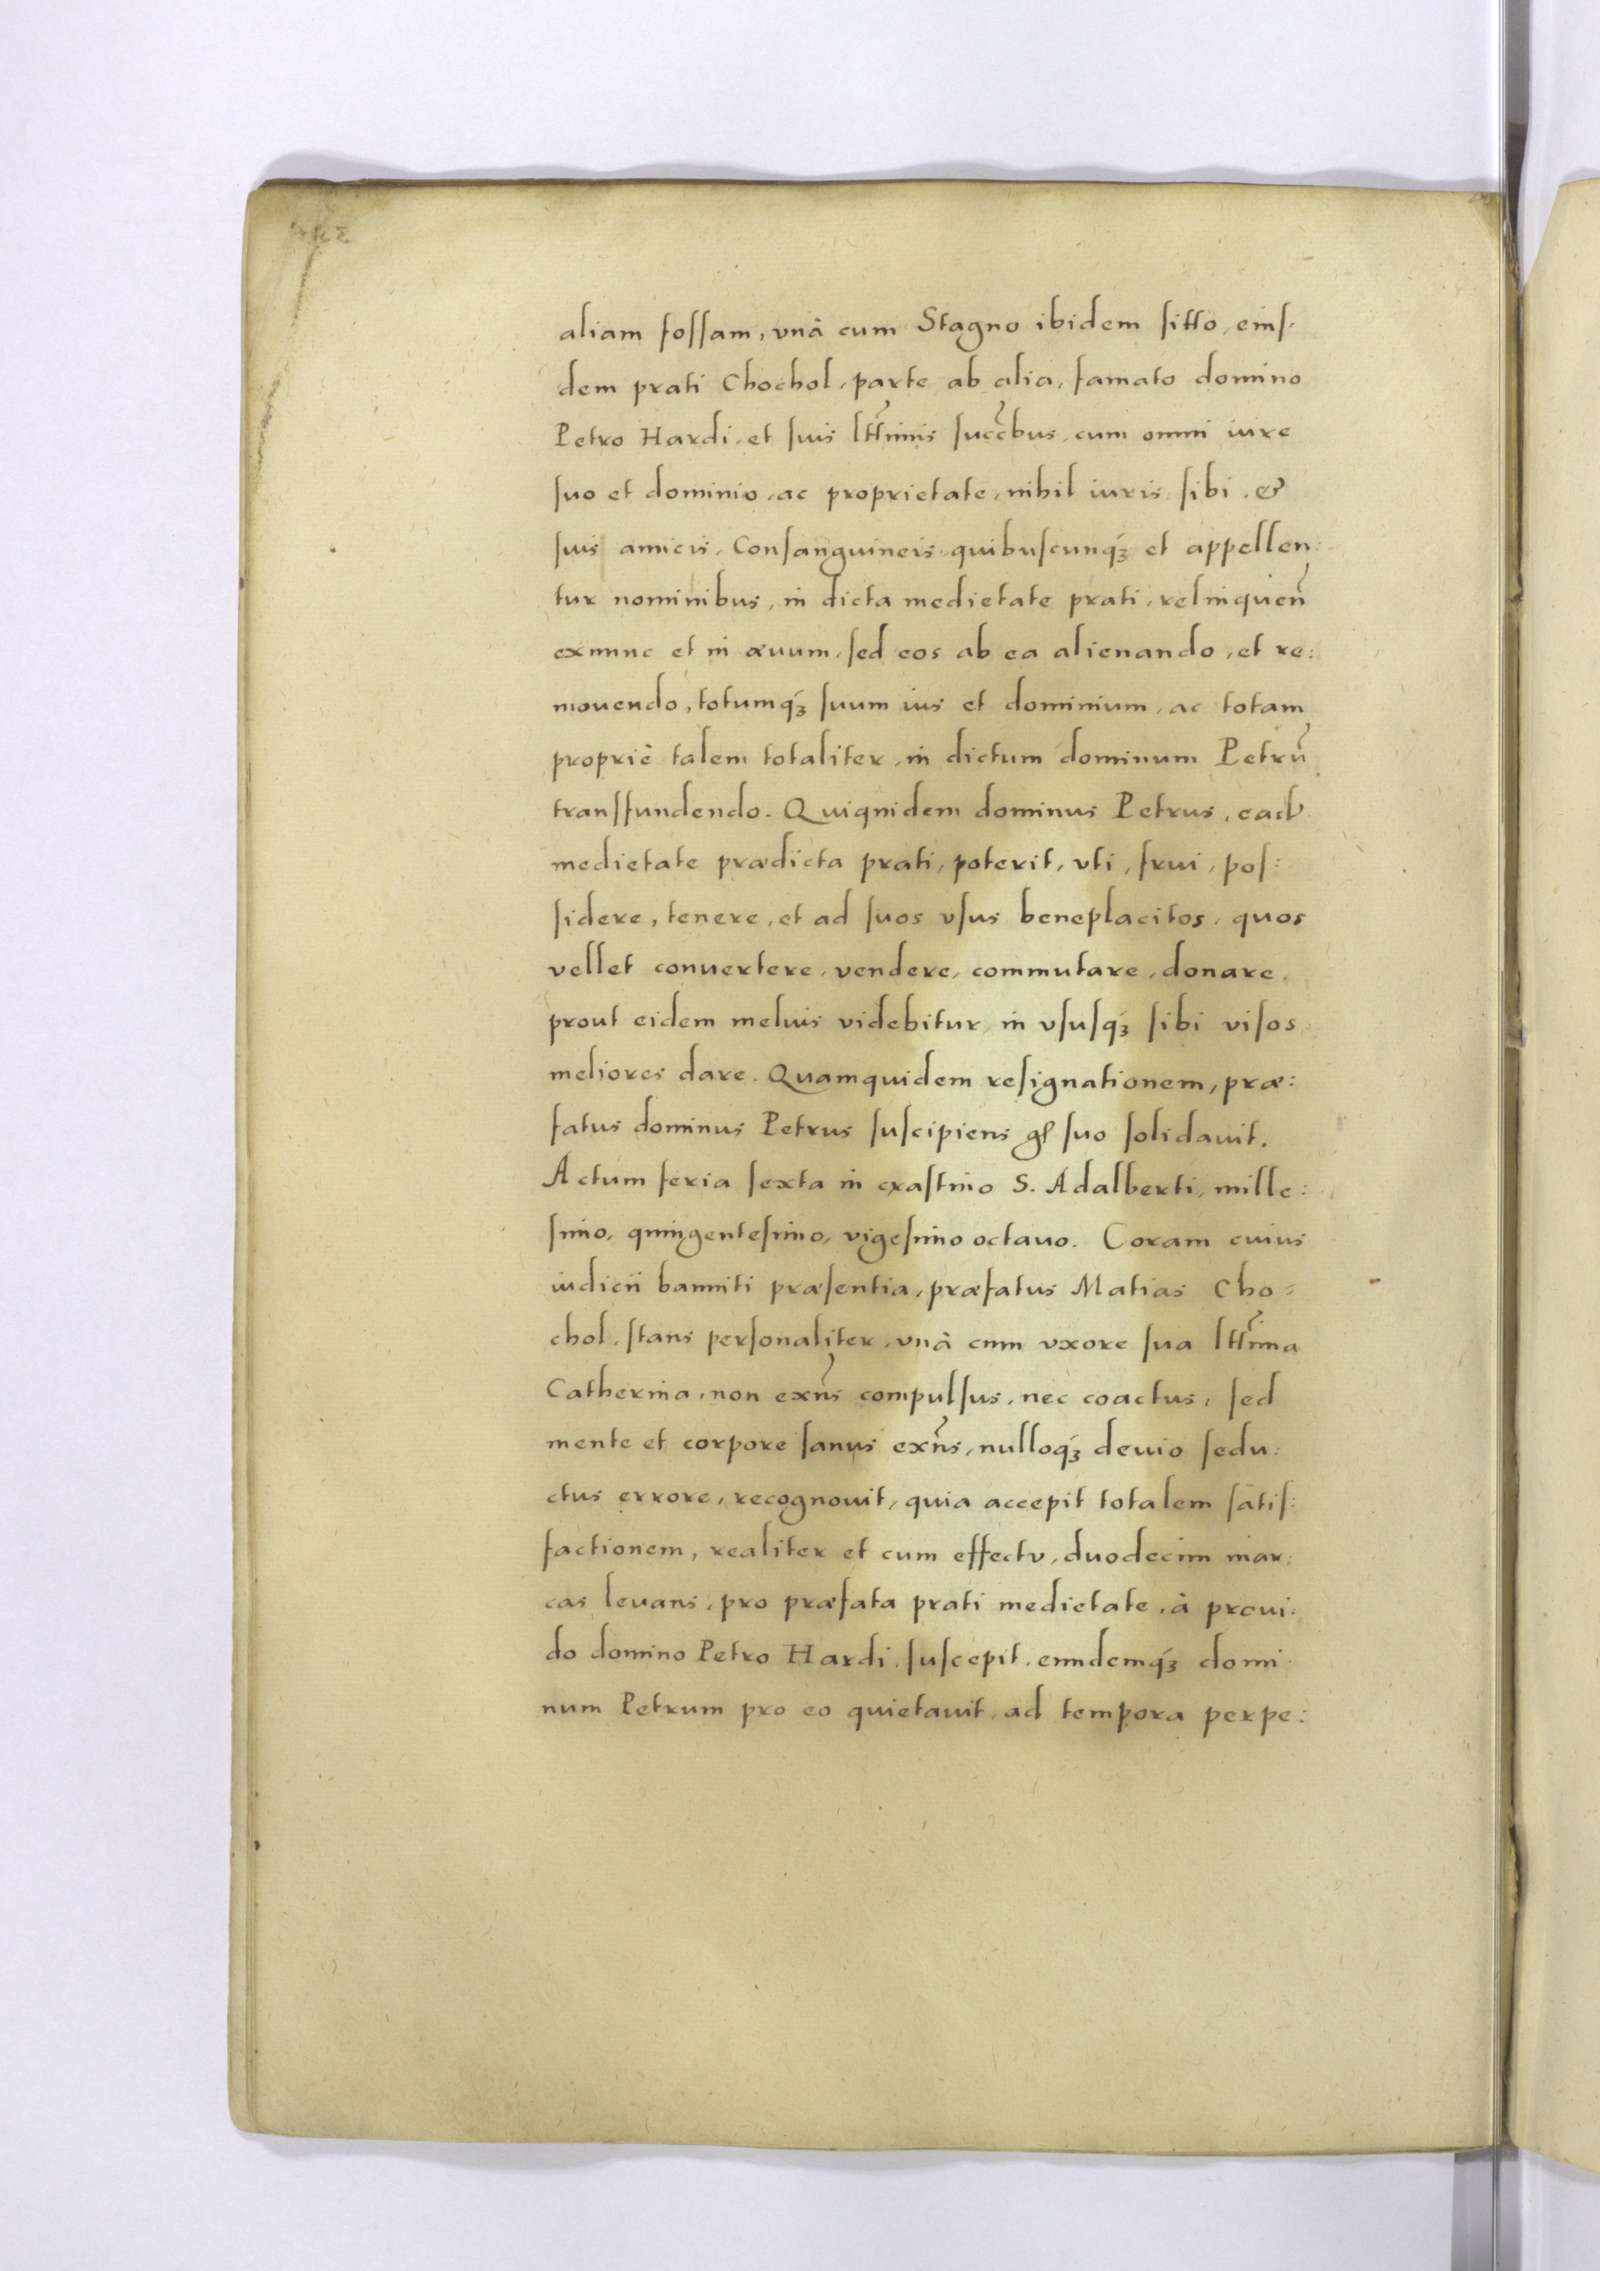 aliam foſſam, vnâ cum Stagno ibidem ſitto, eiuſ-
dem prati Chochol, parte ab alia, famato domino
Petro Hardi, et ſuis lttimis ſuccbus, cum omni iure
ſuo et dominio, ac proprietate, nihil iuris ſibi, &
ſuis amicis, Conſanguineis, quibuſcunqꝫ et appellen:
tur nominibus, in dicta medietate prati, relinquen̄
exnunc et in æuum, ſed eos ab ea alienando, et re:
mouendo, totumqꝫ ſuum ius et dominium, ac totam
propriè talem totaliter, in dictum dominum Petrū
tranſfundendo. Quiquidem dominus Petrus, ead
medietate prædicta prati, poterit, vti, frui, poſ:
ſidere, tenere, et ad ſuos vſus beneplacitos, quos
vellet conuertere, vendere, commutare, donare,
prout eidem melius videbitur, in vſuſqꝫ ſibi viſos
meliores dare. Quamquidem reſignationem, præ:
fatus dominus Petrus ſuſcipiens gſ ſuo ſolidauit.
Actum feria ſexta in craſtino S. Adalberti, mille:
ſimo, quingenteſimo, vigeſimo octauo. Coram cuius
iudicii banniti præſentia, præfatus Matias Cho-
chol, ſtans perſonaliter, vnà cum vxore ſua lttima
Catherina, non exn̄s compulſus, nec coactus, ſed
mente et corpore ſanus exn̄s, nulloqꝫ deuio ſedu:
ctus errore, recognouit, quia accepit totalem ſatiſ:
factionem, realiter et cum effectv, duodecim mar:
cas leuans, pro præfata prati medietate, à proui:
do domino Petro Hardi, ſuſcepit, eundemqꝫ domi-
num Petrum pro eo quietauit, ad tempora perpe: